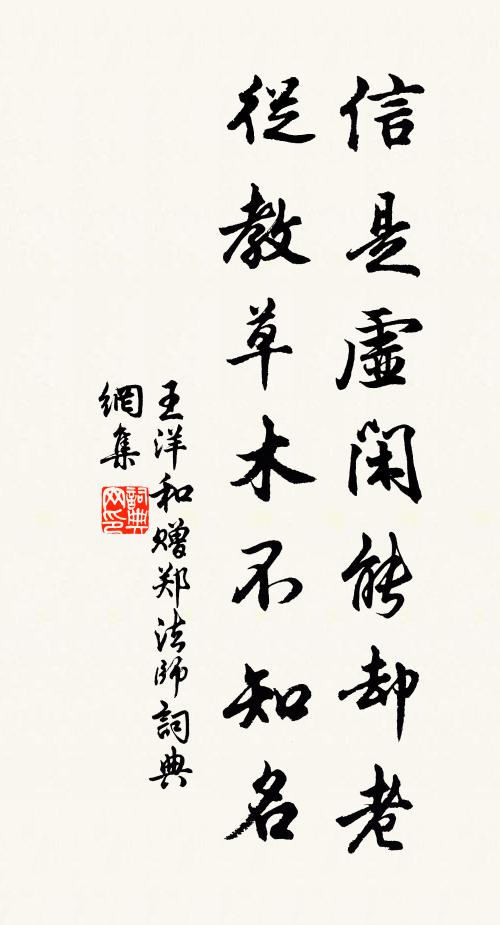 信是虛閑能却老
從教草木不知名
王洋和赠郑法師詞典
網集
詞典
网印